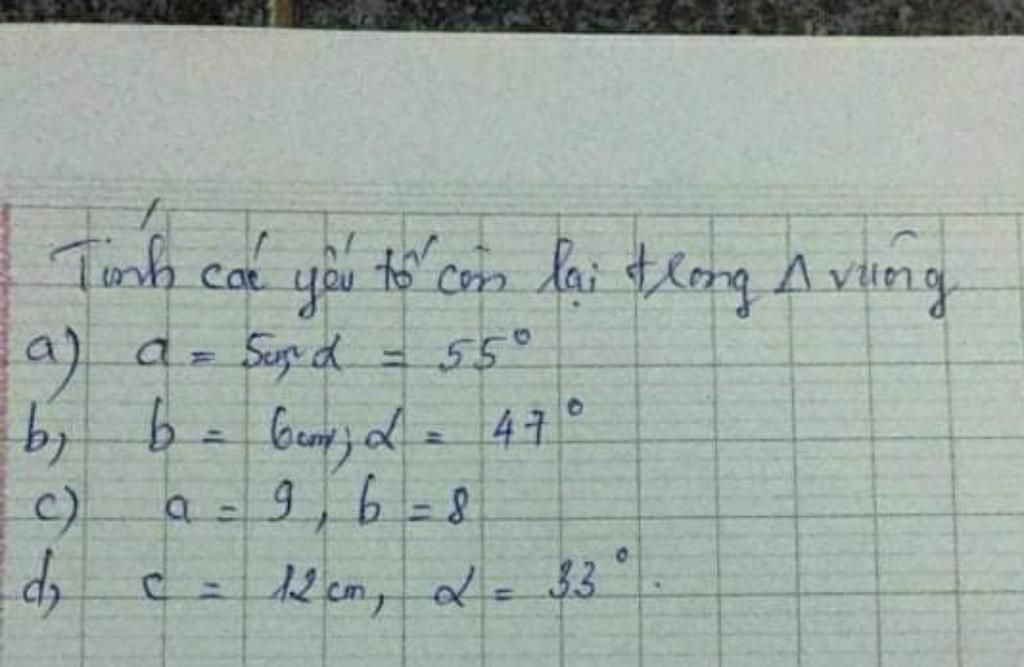 Tính các yếu tố còn lại trong Δ vuông
a) a = 5cm, α = 55°
b, b = 6cm; α = 47°
c) a = 9, b = 8
d, c = 12 cm, α = 33°.